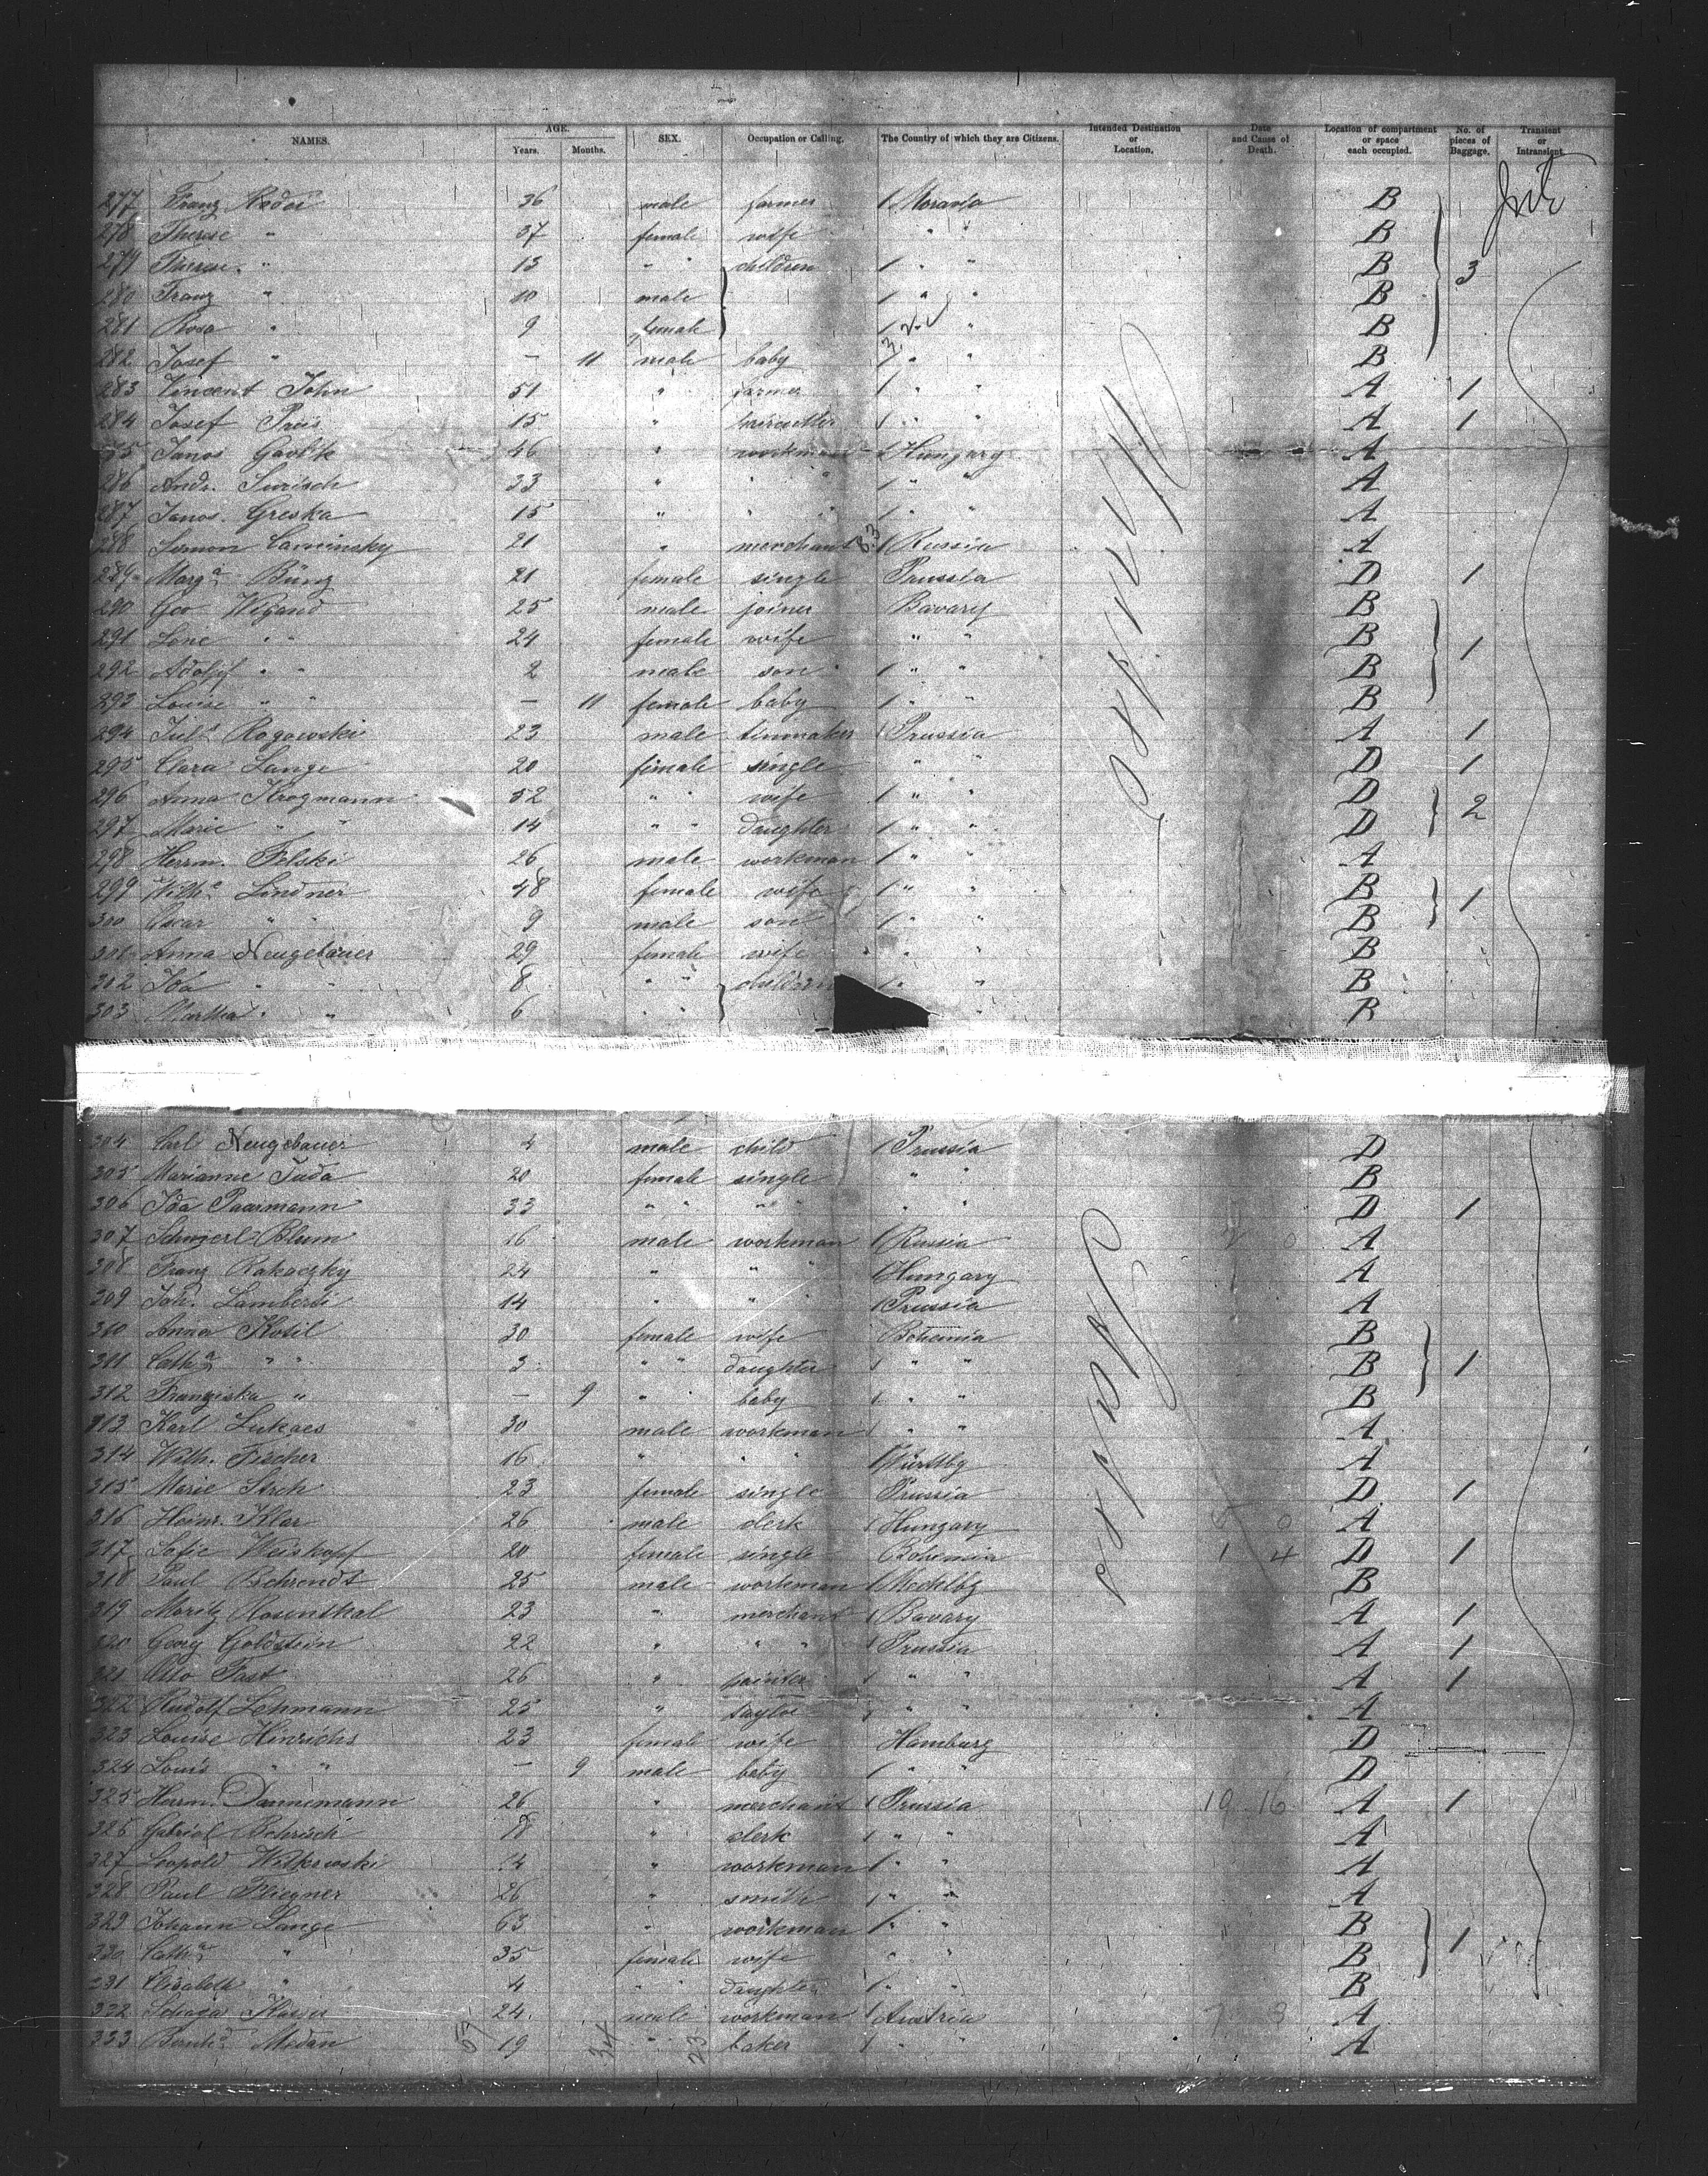 NAMES. AGE. Years. Months. SEX. Occupation or Calling. The Country of which they are Citizens. Intended Destination or Location. Date and Cause of Death. Location of compartment or space each occupied. No. of pieces of Baggage. Transient or Intransient.
277 Franz 36 male farmer 1 Moravia B
278 Therese " 37 female wife " " B
279 Therese " 13 " " children 1 " " B 3
280 Franz " 10 male 1 " " B
281 Rosa " 9 female 1 " B
282 Josef " – 11 male baby 1 " " B
283 Vincent John 51 " farmer 1 " " A 1
284 Josef 15 " 1 " " A 1
Janos Gavlik 46 " workman 1 Hungary A
286 Andr. 33 " " " 1 " " A
287 Janos Greska 15 " " " 1 " " A
288 Simon Caminsky 21 " merchant 1 Russia A
289 Marg.a Büng 21 female single Prussia D 1
290 Geo Wigand 25 male joiner Bavary B
291 Lone " " 24 female wife " " B 1
292 Adolf " " 2 male son 1 " " B
293 Louise " " – 11 female baby 1 " " B
294 Juls Rogowski 23 male tinmaker 1 Prussia A 1
295 Clara Lange 20 female single " " D 1
296 Anna Krogmann 52 " " wife 1 " " D 2
297 Marie " " 14 " " daughter 1 " " D
298 Herrm. Felski 26 male workman 1 " " A
299 Wilh.a Lindner 48 female wife 1 " " B 1
300 Oscar " " 9 male son 1 " " B
301 Anna Neugebauer 29 female wife " " B
302 Ida " " 8 " " children 1 " " B
303 Martha " " 6 " " B
304 Carl Neugebauer 4 male child 1 Prussia D
305 Marianne Juda 20 female single " " B
306 Ida Paarmann 33 " " " " " " D 1
307 Blum 16 male workman 1 Russia A
308 Franz Rakaczky 24 " " " 1 Hungary A
309 Joh. Lamberti 14 " " " 1 Prussia A
310 Anna Kosil 30 female wife Bohemia B
311 Cath.a " " 3 " " daughter 1 " " B 1
312 Franziska " – 9 " " baby 1 " " B
313 Karl Lukacs 30 male workman 1 " " A
314 Wilh. Fischer 16 " " " 1 Württbg A
315 Marie 23 female single Prussia D 1
316 Heinr. Klar 26 male clerk 1 Hungary A
317 Sofie Weiskopf 20 female single Bohemia 1 4 D 1
318 Paul Behrendt 25 male workman 1 Mecklbg B
319 Moritz Rosenthal 23 " merchant 1 Bavary A 1
320 Georg Goldstein 22 " " " 1 Prussia A 1
321 Otto Fast 26 " painter 1 " " A 1
322 Rudolf Lehmann 25 " taylor 1 " " A
323 Louise Hinrichs 23 female wife Hamburg D
324 Louis " " – 9 male baby 1 " " D
325 Herrm. Dannemann 26 " merchant 1 Prussia 19 16 A 1
326 Gabriel 18 " clerk 1 " " A
327 Leopold Witkowski 14 " workman 1 " " A
328 Paul Fliegner 26 " smith 1 " " A
329 Johann Lange 63 " workman 1 " " B
330 Cath.a " 35 female wife " " B 1
331 Elisabeth " 4 " " daughter 1 " " B
332 24 male workman 1 Austria A
333 19 " baker 1 " " A